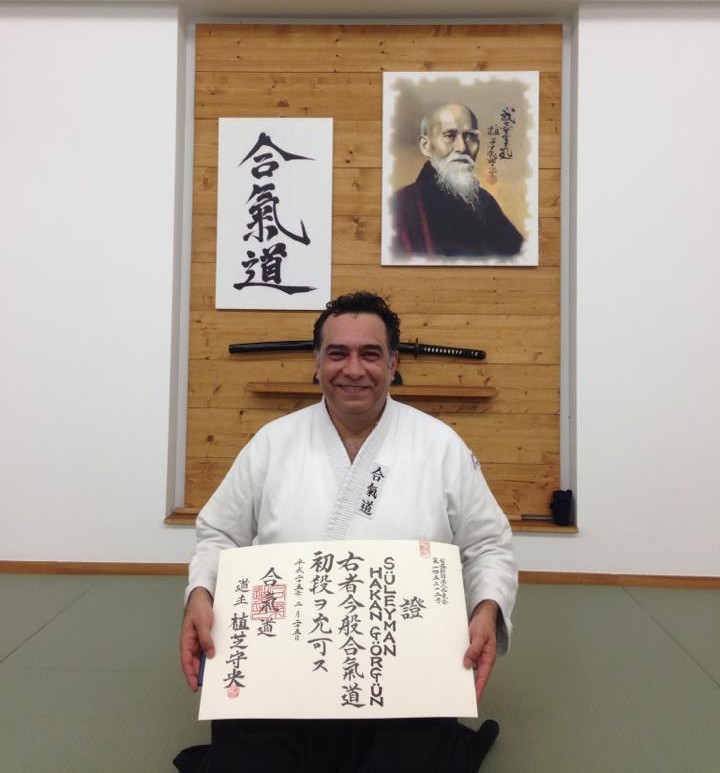 合氣道
合氣道
證
SÜLEYMAN
HAKAN GÖRGÜN
右者今般合氣道
初段ヲ允可ス
平成二十五年 二月二十五日
合氣道
道主 植芝守央